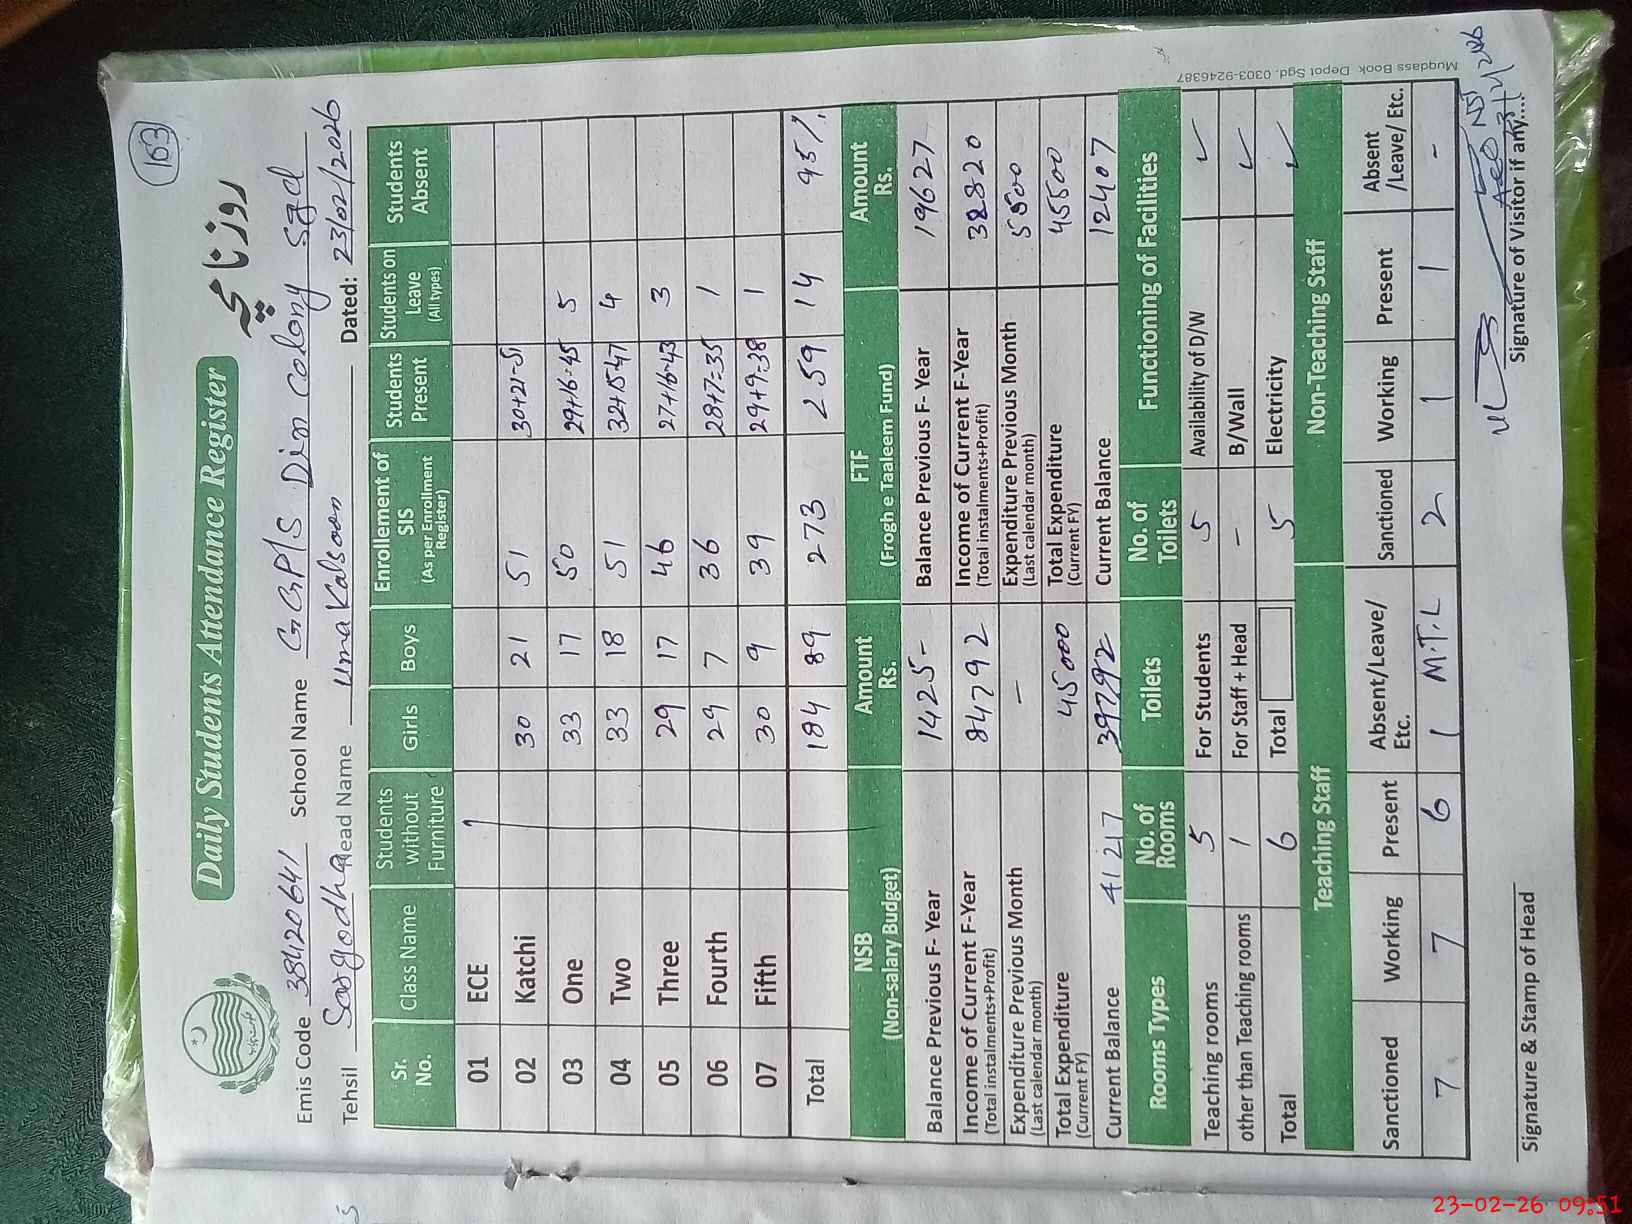 163
روزنامچہ
Daily Students Attendance Register
Emis Code 384120641 School Name G.G.P/S Din Colony Sgd
Tehsil Sargodha Head Name Uma Kalsoom Dated: 23/02/2026
Sr. No. Class Name Students Without Furniture Girls Boys Enrollement of SIS (As per Enrollment Register) Students Present Students on Leave (All types) Students Absent
01 ECE
02 Katchi 30 21 51 30+21=51
03 One 33 17 50 29+16=45 5
04 Two 33 18 51 32+15=47 4
05 Three 29 17 46 27+16=43 3
06 Fourth 29 7 36 28+7=35 1
07 Fifth 30 9 39 29+9=38 1
Total 184 89 273 259 14 95%
NSB (Non-salary Budget) Amount Rs. FTF (Frogh e Taaleem Fund) Amount Rs.
Balance Previous F- Year 1425- Balance Previous F- Year 19627
Income of Current F-Year (Total instalments+Profit) 84792 Income of Current F-Year (Total instalments+Profit) 38820
Expenditure Previous Month (Last calendar month) - Expenditure Previous Month (Last calendar month) 5500
Total Expenditure (Current FY) 45000 Total Expenditure (Current FY) 45500
Current Balance 41217 39792 Current Balance 12407
Rooms Types No. of Rooms Toilets No. of Toilets Functioning of Facilities
Teaching rooms 5 For Students 5 Availability of D/W ✓
other than Teaching rooms 1 For Staff + Head - B/Wall ✓
Total 6 Total 5 Electricity ✓
Teaching Staff Non-Teaching Staff
Sanctioned Working Present Absent/Leave/ Etc. Sanctioned Working Present Absent /Leave/ Etc.
7 7 6 1 M.T.L 2 1 1 -
Signature & Stamp of Head Signature of Visitor if any....
Muqdass Book Depot Sgd. 0303-9246387
23-02-26 09:51